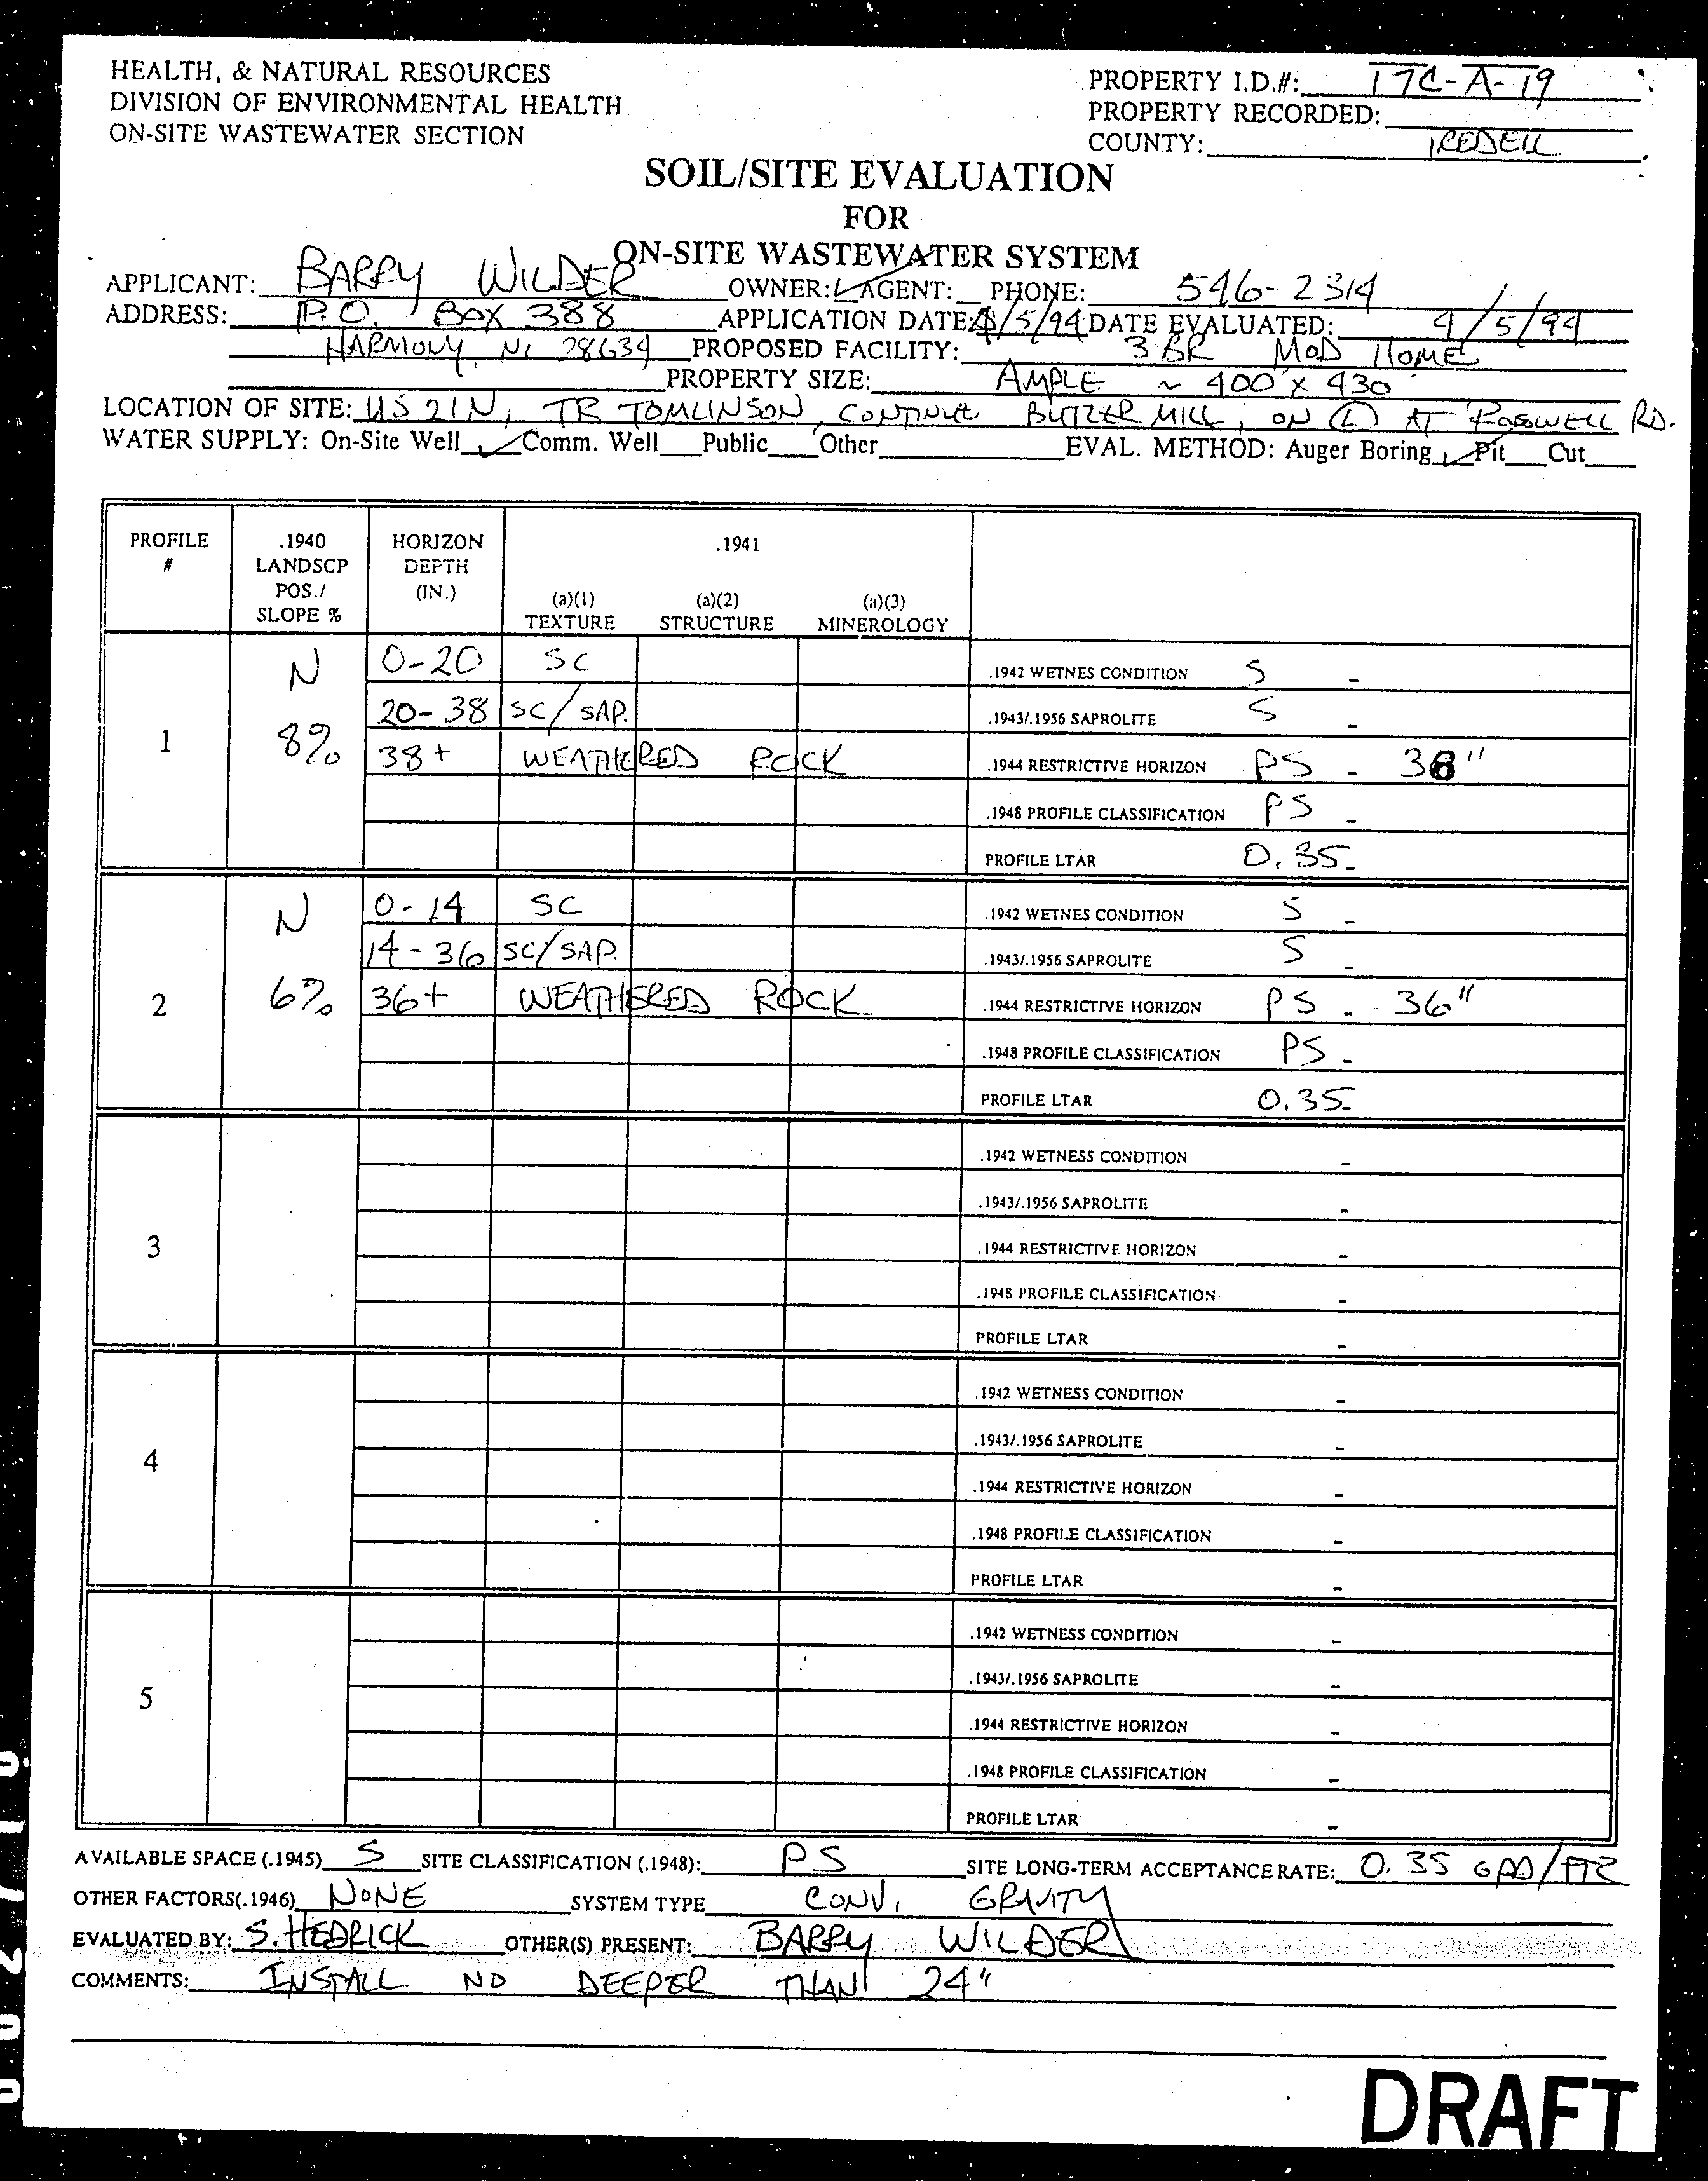 HEALTH, & NATURAL RESOURCES
DIVISION OF ENVIRONMENTAL HEALTH
ON-SITE WASTEWATER SECTION
PROPERTY I.D.#: 17C-A-19
PROPERTY RECORDED:
COUNTY: IREDELL
SOIL/SITE EVALUATION
FOR
ON-SITE WASTEWATER SYSTEM
APPLICANT: BARRY WILDER OWNER: ✓ AGENT: PHONE: 546-2314
ADDRESS: P.O. BOX 388 APPLICATION DATE: 4/5/94 DATE EVALUATED: 4/5/94
HARMONY, NC 28634 PROPOSED FACILITY: 3 BR MOD HOME
PROPERTY SIZE: AMPLE ~ 400' x 430'
LOCATION OF SITE: US 21 N, TR TOMLINSON, CONTINUE BUTZER MILL, ON (L) AT RD.
WATER SUPPLY: On-Site Well ✓ Comm. Well Public Other EVAL. METHOD: Auger Boring ✓ Pit Cut
PROFILE # .1940 LANDSCP POS./ SLOPE % HORIZON DEPTH (IN.) .1941
(a)(1) TEXTURE (a)(2) STRUCTURE (a)(3) MINEROLOGY
1 N 8%
0-20 SC .1942 WETNES CONDITION S -
20-38 SC/SAP. .1943/.1956 SAPROLITE S -
38+ WEATHERED ROCK .1944 RESTRICTIVE HORIZON PS - 38"
.1948 PROFILE CLASSIFICATION PS -
PROFILE LTAR 0.35-
2 N 6%
0-14 SC .1942 WETNES CONDITION S -
14-36 SC/SAP. .1943/.1956 SAPROLITE S -
36+ WEATHERED ROCK .1944 RESTRICTIVE HORIZON PS - 36"
.1948 PROFILE CLASSIFICATION PS -
PROFILE LTAR 0.35-
3
.1942 WETNESS CONDITION -
.1943/.1956 SAPROLITE -
.1944 RESTRICTIVE HORIZON -
.1948 PROFILE CLASSIFICATION -
PROFILE LTAR -
4
.1942 WETNESS CONDITION -
.1943/.1956 SAPROLITE -
.1944 RESTRICTIVE HORIZON -
.1948 PROFILE CLASSIFICATION -
PROFILE LTAR -
5
.1942 WETNESS CONDITION -
.1943/.1956 SAPROLITE -
.1944 RESTRICTIVE HORIZON -
.1948 PROFILE CLASSIFICATION -
PROFILE LTAR -
AVAILABLE SPACE (.1945) S SITE CLASSIFICATION (.1948): PS SITE LONG-TERM ACCEPTANCE RATE: 0.35 GPD/FT2
OTHER FACTORS(.1946) NONE SYSTEM TYPE CONV. GRAVITY
EVALUATED BY: S. HEDRICK OTHER(S) PRESENT: BARRY WILDER
COMMENTS: INSTALL NO DEEPER THAN 24"
DRAFT